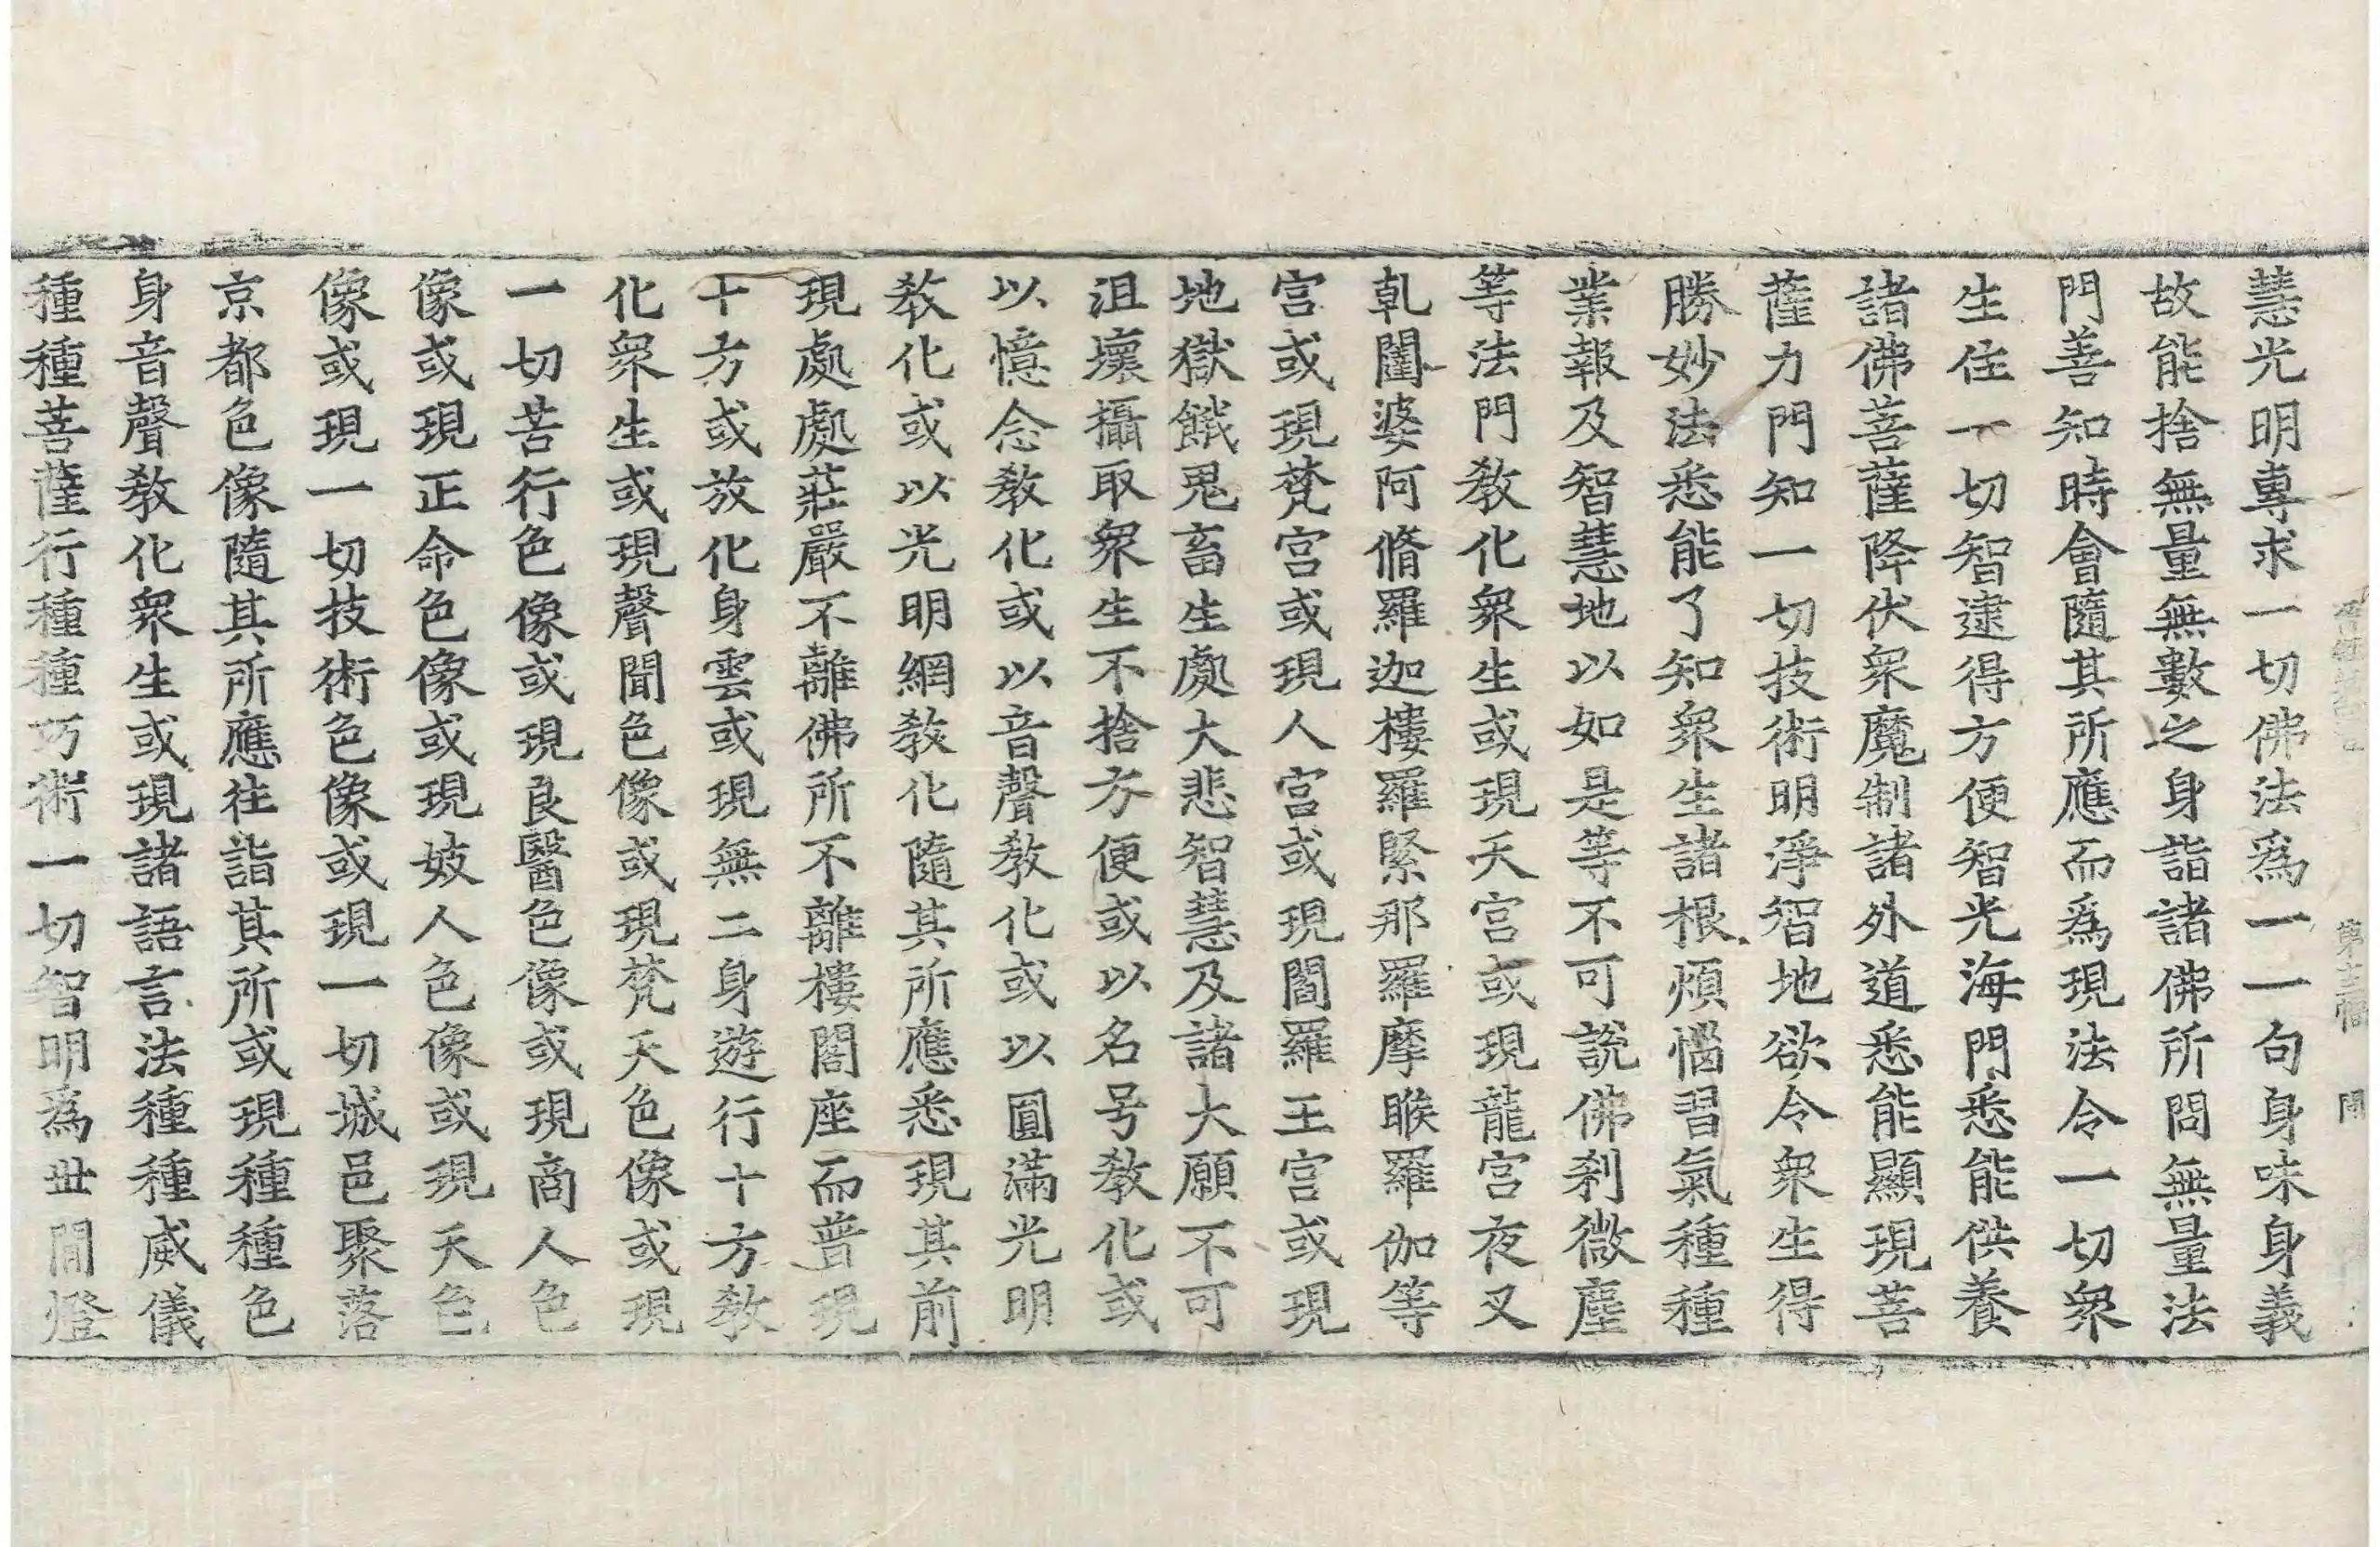 慧光明專求一切佛法爲一一句身味身義
故能捨無量無數之身詣諸佛所問無量法
門善知時會隨其所應而爲現法令一切衆
生住一切智逮得方便智光海門悉能供養
諸佛菩薩降伏衆魔制諸外道悉能顯現菩
薩力門知一切技術明淨智地欲令衆生得
勝妙法悉能了知衆生諸根煩惱習氣種種
業報及智慧地以如是等不可說佛刹微塵
等法門教化衆生或現天宮或現龍宮夜叉
乹闥婆阿脩羅迦樓羅緊那羅摩睺羅伽等
宮或現梵宮或現人宮或現閻羅王宮或現
地獄餓鬼畜生處大悲智慧及諸大願不可
沮壞攝取衆生不捨方便或以名号教化或
以憶念教化或以音聲教化或以圓滿光明
教化或以光明網教化隨其所應悉現其前
現處處莊嚴不離佛所不離樓閣座而普現
十方或放化身雲或現無二身遊行十方教
化衆生或現聲聞色像或現梵天色像或現
一切苦行色像或現良醫色像或現商人色
像或現正命色像或現妓人色像或現天色
像或現一切技術色像或現一切城邑聚落
京都色像隨其所應往詣其所或現種種色
身音聲教化衆生或現諸語言法種種威儀
種種菩薩行種種巧術一切智明爲世間燈